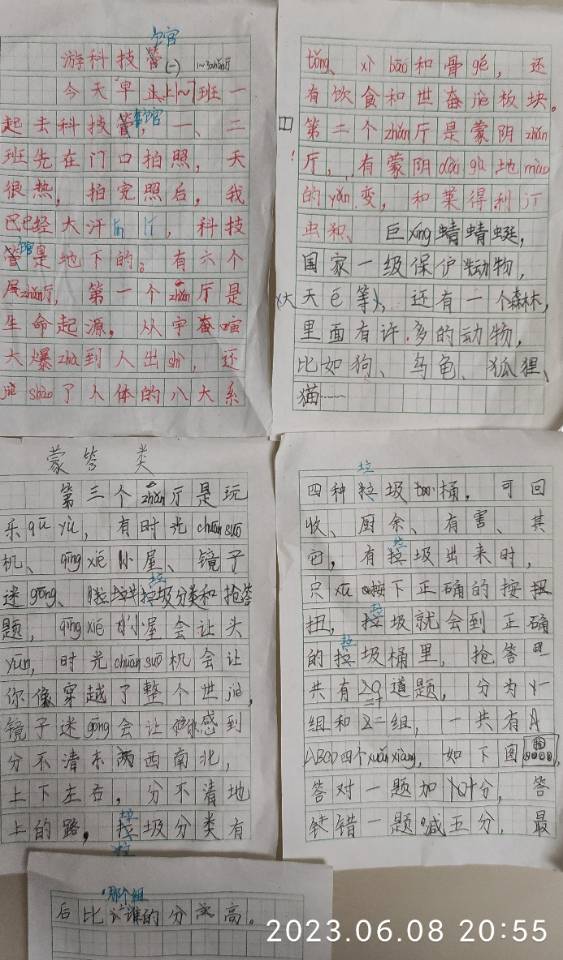 游科技管(一)
馆
今天早上1~7班一
起去科技馆,一、二
班先在门口拍照,天
很热,拍完照后,我
已经大汗lín lí,科技
馆是地下的。有六个
zhǎn厅,第一个zhǎn厅是
生命起源。从宇宙
大爆zhà到人出shì,还
shào了人体的八大系
tǒng、xì bāo和骨gé,还
有饮食和世界板块。
第二个zhǎn厅是蒙阴zhǎn
厅,有蒙阴de gǔ地mào
的yǎn变,和莱得利
虫和、巨xíng蜻蜻蜓,
国家一级保护动物,
(大天鹅等),还有一个森林,
里面有许多的动物,
比如狗、乌龟、狐狸、
猫……
蒙答类
第三个zhǎn厅是玩
乐qū yù,有时光chuān suō
机、qīng xié小屋、镜子
迷gōng、垃圾分类和抢答
题,qīng xié小屋会让头
yūn,时光chuān suō机会让
你像穿越了整个世jiè,
镜子迷gōng会让你感到
分不清东西南北,
上下左右,分不清地
上的路,垃圾分类有
四种垃圾桶,可回
收、厨余、有害、其
它,有垃圾出来时,
只xū按下正确的按
扭,垃圾就会到正确
的垃圾桶里,抢答
共有20道题,分为一
组和二组,一共有
ABCD四个xuǎn xiàng,如下图
答对一题加10分,答
错一题减五分,最
那个组
后比谁的分高。
2023.06.08 20:55